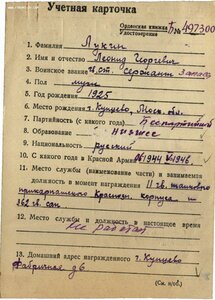 Учетная карточка
Орденская книжка
Удостоверение
Б № 497300
1. Фамилия Лукин
2. Имя и отчество Леонид Георгиевич
3. Воинское звание гв. ст. сержант запаса
4. Пол муж
5. Год рождения 1925
6. Место рождения г. Кунцево, Моск. обл.
7. Партийность (с какого года) Беспартийный
8. Образование низшее
9. Национальность русский
10. С какого года в Красной Армии с 1944 1946
11. Место службы (наименование части) и занимаемая
должность в момент награждения 11 гв. танкового
прикарпатского Краснозн. корпуса
362 гв. сап
12. Место службы и должность в настоящее
время не работает
13. Домашний адрес награжденного г. Кунцево
Фабричная д 6
(См. н/об.)